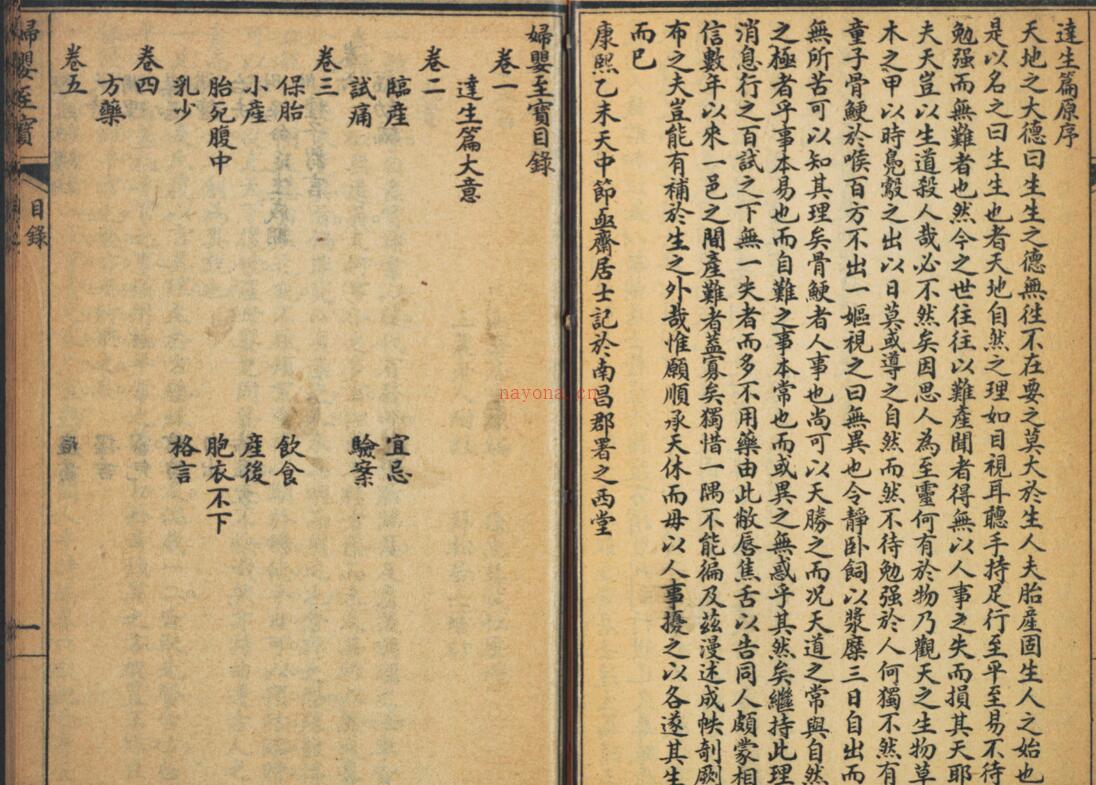 達生篇原序
天地之大德曰生生之德無徃不在要之莫大於生人夫胎產固生人之始也
是以名之曰生生也者天地自然之理如目視耳聽手持足行至平至易不待
勉强而無難者也然今之世往往以難產聞者得無以人事之失而損其天耶
夫天豈以生道殺人哉必不然矣因思人為至靈何有於物乃觀天之生物草
木之甲以時鳧鷇之出以日莫或導之自然而然不待勉强於人何獨不然有
童子骨鯁於喉百方不出一嫗視之曰無異也令靜卧飼以漿糜三日自出而
無所苦可以知其理矣骨鯁者人事也尚可以天勝之而况天道之常與自然
之極者乎事本易也而自難之事本常也而或異之無惑乎其然矣繼持此理
消息行之百試之下無一失者而多不用藥由此敝唇焦舌以告同人頗蒙相
信數年以來一邑之間產難者蓋寡矣獨惜一隅不能徧及茲漫述成帙剞劂
布之夫豈能有補於生之外哉惟願順承天休而毋以人事擾之以各遂其生
而已
康熙乙未天中節亟齋居士記於南昌郡署之西堂
婦嬰至寶目錄
卷一
達生篇大意
卷二
臨產 宜忌
試痛 驗案
卷三
保胎 飲食
小產 產後
胎死腹中 胞衣不下
乳少 格言
卷四
方藥
卷五
婦嬰至寶
目錄
一
nayona.cn